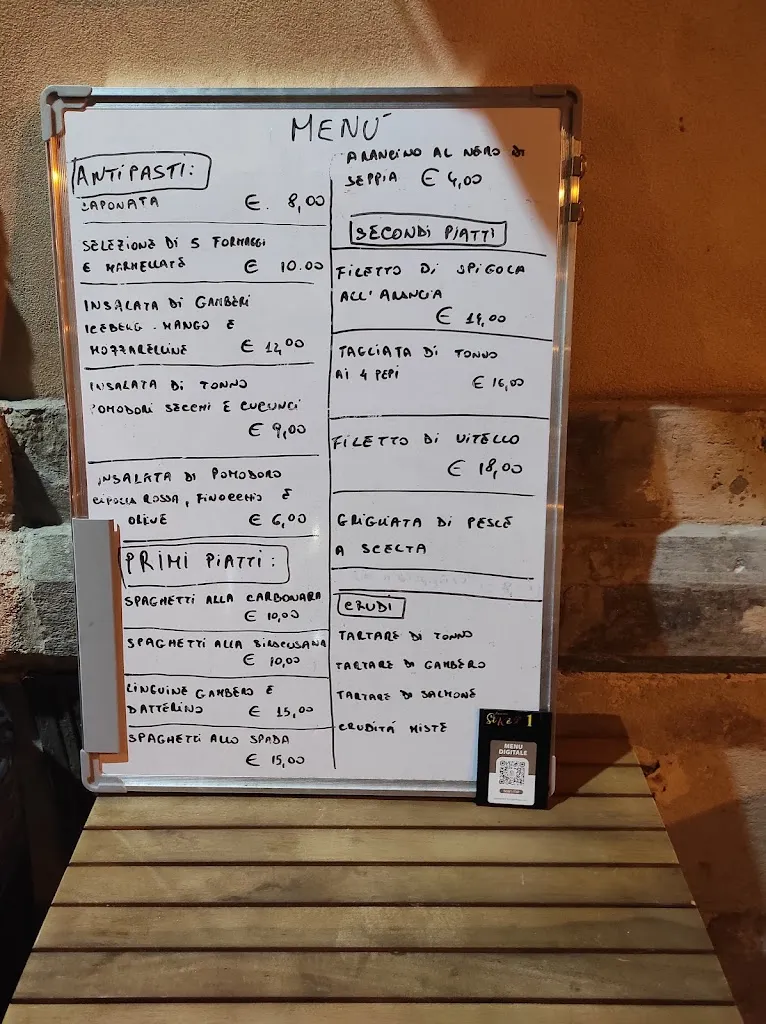 MENÚ
ANTIPASTI:
CAPONATA € 8,00
SELEZIONE DI 5 FORMAGGI
E MARMELLATE € 10.00
INSALATA DI GAMBERI
ICEBERG - MANGO E
MOZZARELLINE € 12,00
INSALATA DI TONNO
POMODORI SECCHI E CUCUNCI
€ 9,00
INSALATA DI POMODORO
CIPOLLA ROSSA, FINOCCHIO E
OLIVE € 6,00
PRIMI PIATTI:
SPAGHETTI ALLA CARBONARA
€ 10,00
SPAGHETTI ALLA SIRACUSANA
€ 10,00
LINGUINE GAMBERO E
DATTERINO € 15,00
SPAGHETTI ALLO SPADA
€ 15,00
ARANCINO AL NERO DI
SEPPIA € 4,00
SECONDI PIATTI
FILETTO DI SPIGOLA
ALL'ARANCIA
€ 14,00
TAGLIATA DI TONNO
AI 4 PEPI € 16,00
FILETTO DI VITELLO
€ 18,00
GRIGLIATA DI PESCE
A SCELTA
CRUDI
TARTARE DI TONNO
TARTARE DI GAMBERO
TARTARE DI SALMONE
CRUDITÁ MISTE
1
MENU
DIGITALE